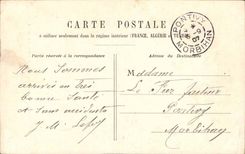 CARTE POSTALE
à utiliser seulement dans le régime intérieur (FRANCE, ALGÉRIE
PONTIVY
MORBIHAN
Partie réservée à la correspondance
Adresse du Destinataire
Nous Sommes
arrivés en très
bonne Santé
et sans accidents
J. M.
Madame
Le
facteur
Pontivy
Morbihan